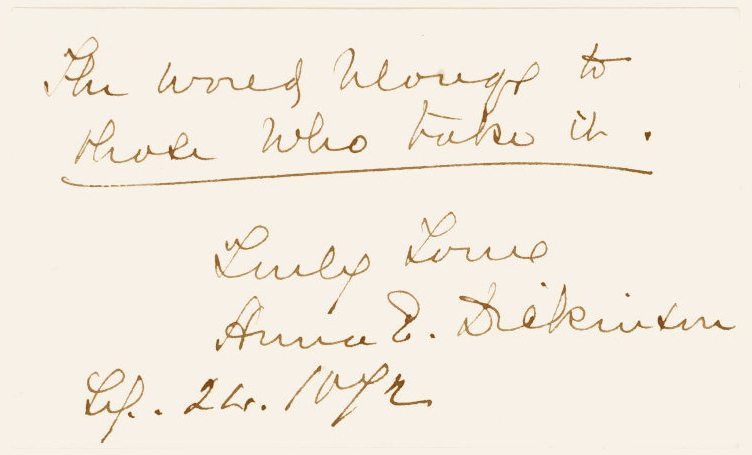 The world belongs to
those who take it.
Truly Yours
Anna E. Dickinson
Sep. 24. 1872